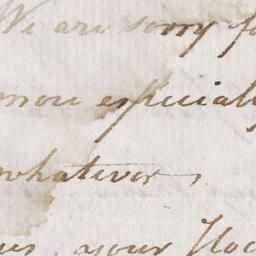 We are sorry fo
more especiall
whatever,
your Hoo